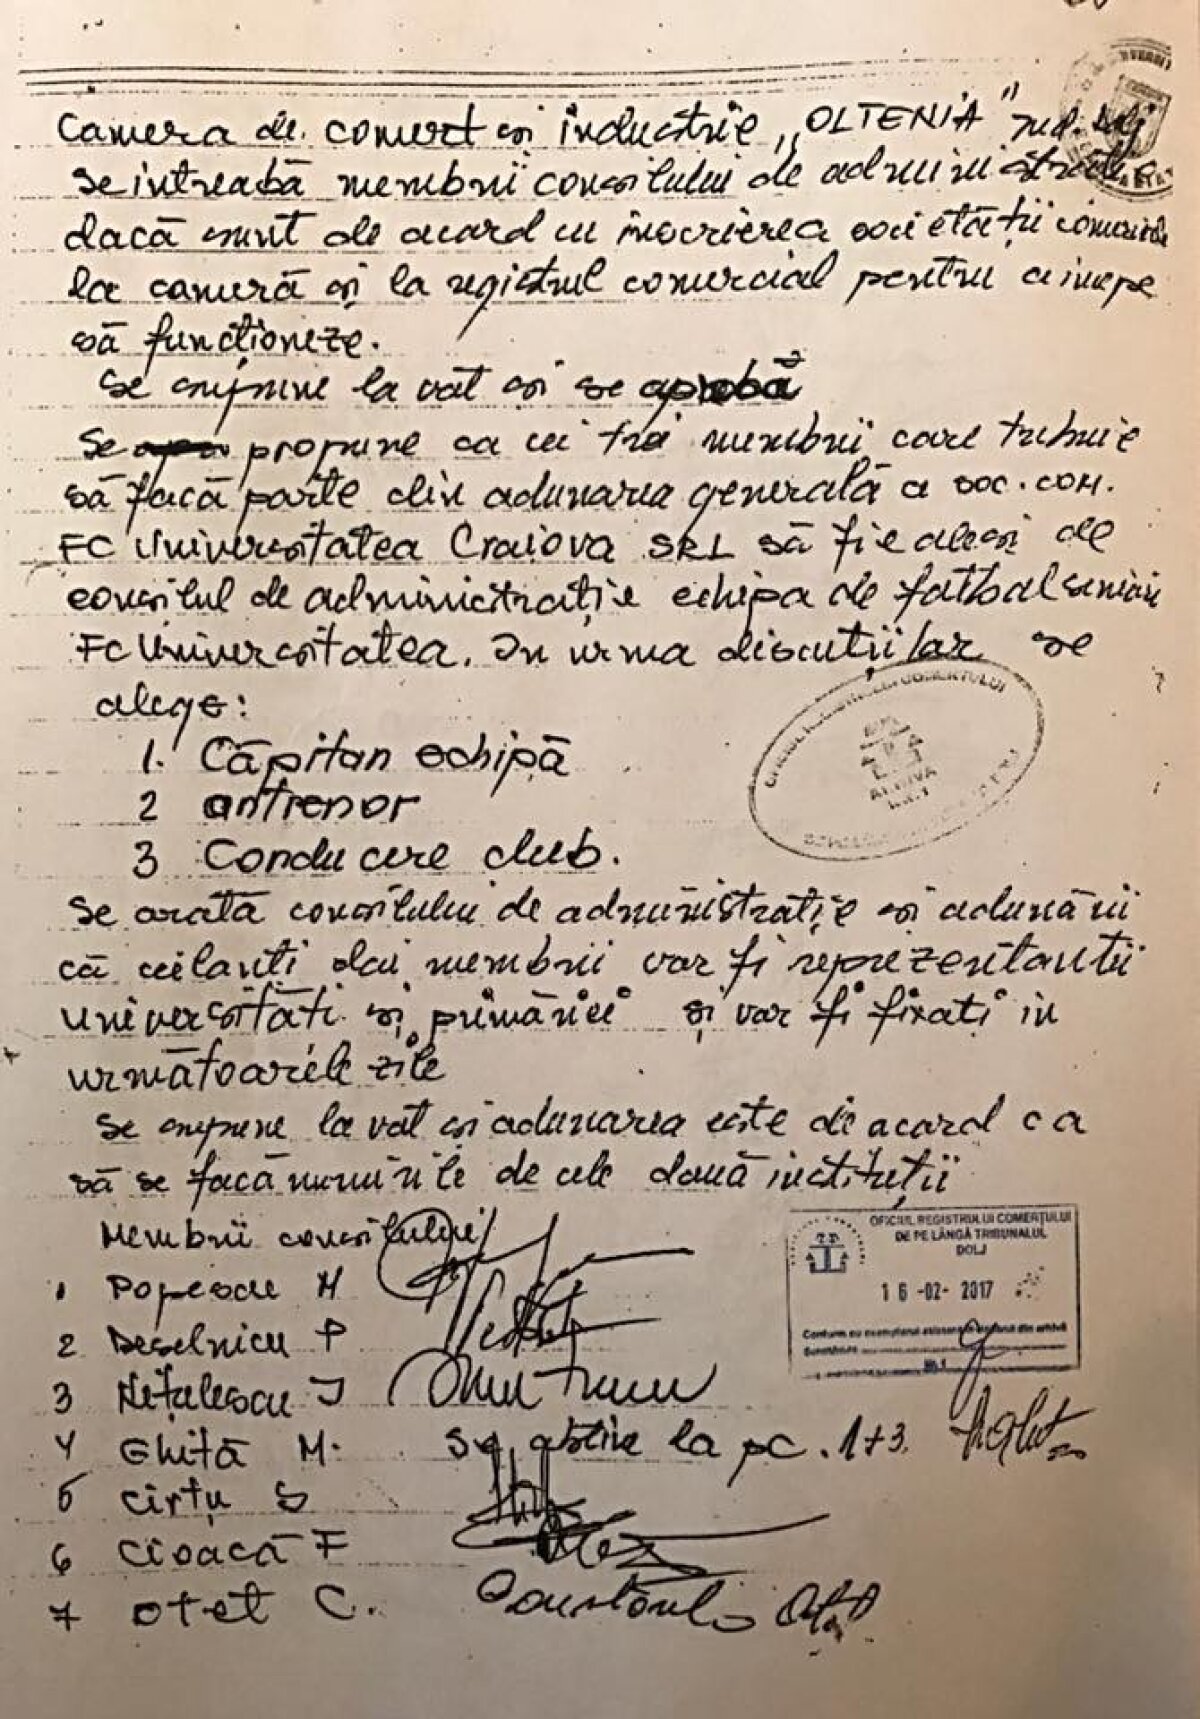 Camera de comert și industrie „OLTENIA" Jud. Dolj
Se intreabă membrii consiliului de administrație
dacă sunt de acord cu înscrierea societății comerciale
la cameră și la registrul comercial pentru a incepe
să funcționeze.
Se supune la vot și se aprobă
Se propune ca cei trei membrii care trebuie
să facă parte din adunarea generală a soc. com.
FC Universitatea Craiova SRL să fie aleși de
consiliul de administrație echipa de fotbal seniori
FC Universitatea. In urma discuțiilor se
alege:
1. Căpitan echipă
2 antrenor
3 Conducere club.
Se arată consiliului de administrație și adunării
că ceilanti doi membrii vor fi reprezentantii
Universității și primăriei și vor fi fixați in
următoarele zile
Se supune la vot și adunarea este de acord ca
să se facă numirile de cele două instituții
Membrii consiliului
1 Popescu M
2 Deselnicu P
3 Nețulescu I
4 Ghiță M. Se abtine la pc. 1+3.
5 Cîrțu S
6 Cioacă F
7 Otet C.
ARHIVA
OFICIUL REGISTRULUI COMERȚULUI
DE PE LÂNGĂ TRIBUNALUL
DOLJ
16 -02- 2017
Conform cu exemplarul din arhivă